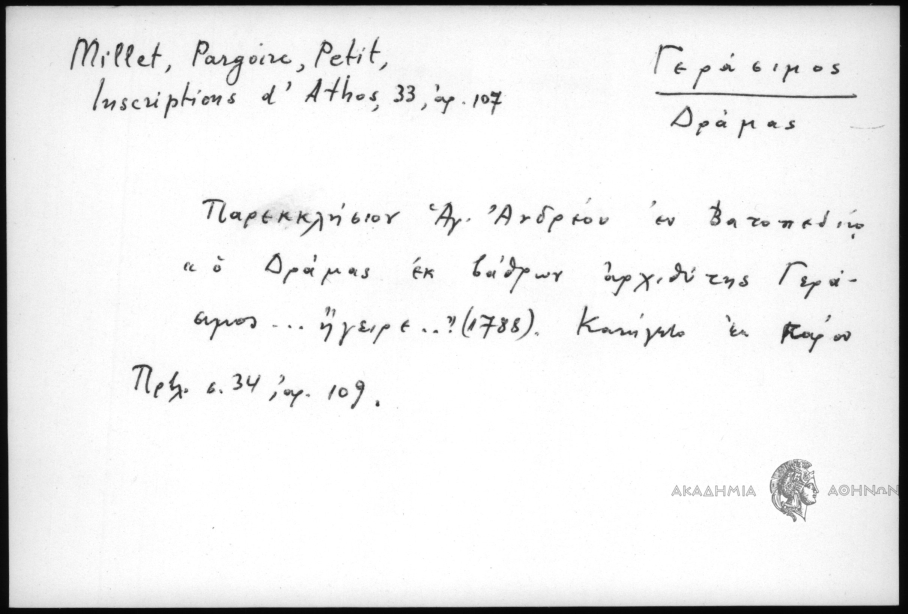 Millet, Pargoire, Petit,
Inscriptions d' Athos, 33, ἀρ. 107
Γεράσιμος
Δράμας
Παρεκκλήσιον Ἁγ. Ἀνδρέου ἐν Βατοπεδίῳ
«ὁ Δράμας ἐκ βάθρων ἀρχιθύτης Γερά-
σιμος... ἤγειρε..» (1788). Κατήγετο ἐκ Πάρου
Πρβλ. σ. 34, ἀρ. 109.
ΑΚΑΔΗΜΙΑ ΑΘΗΝΩΝ